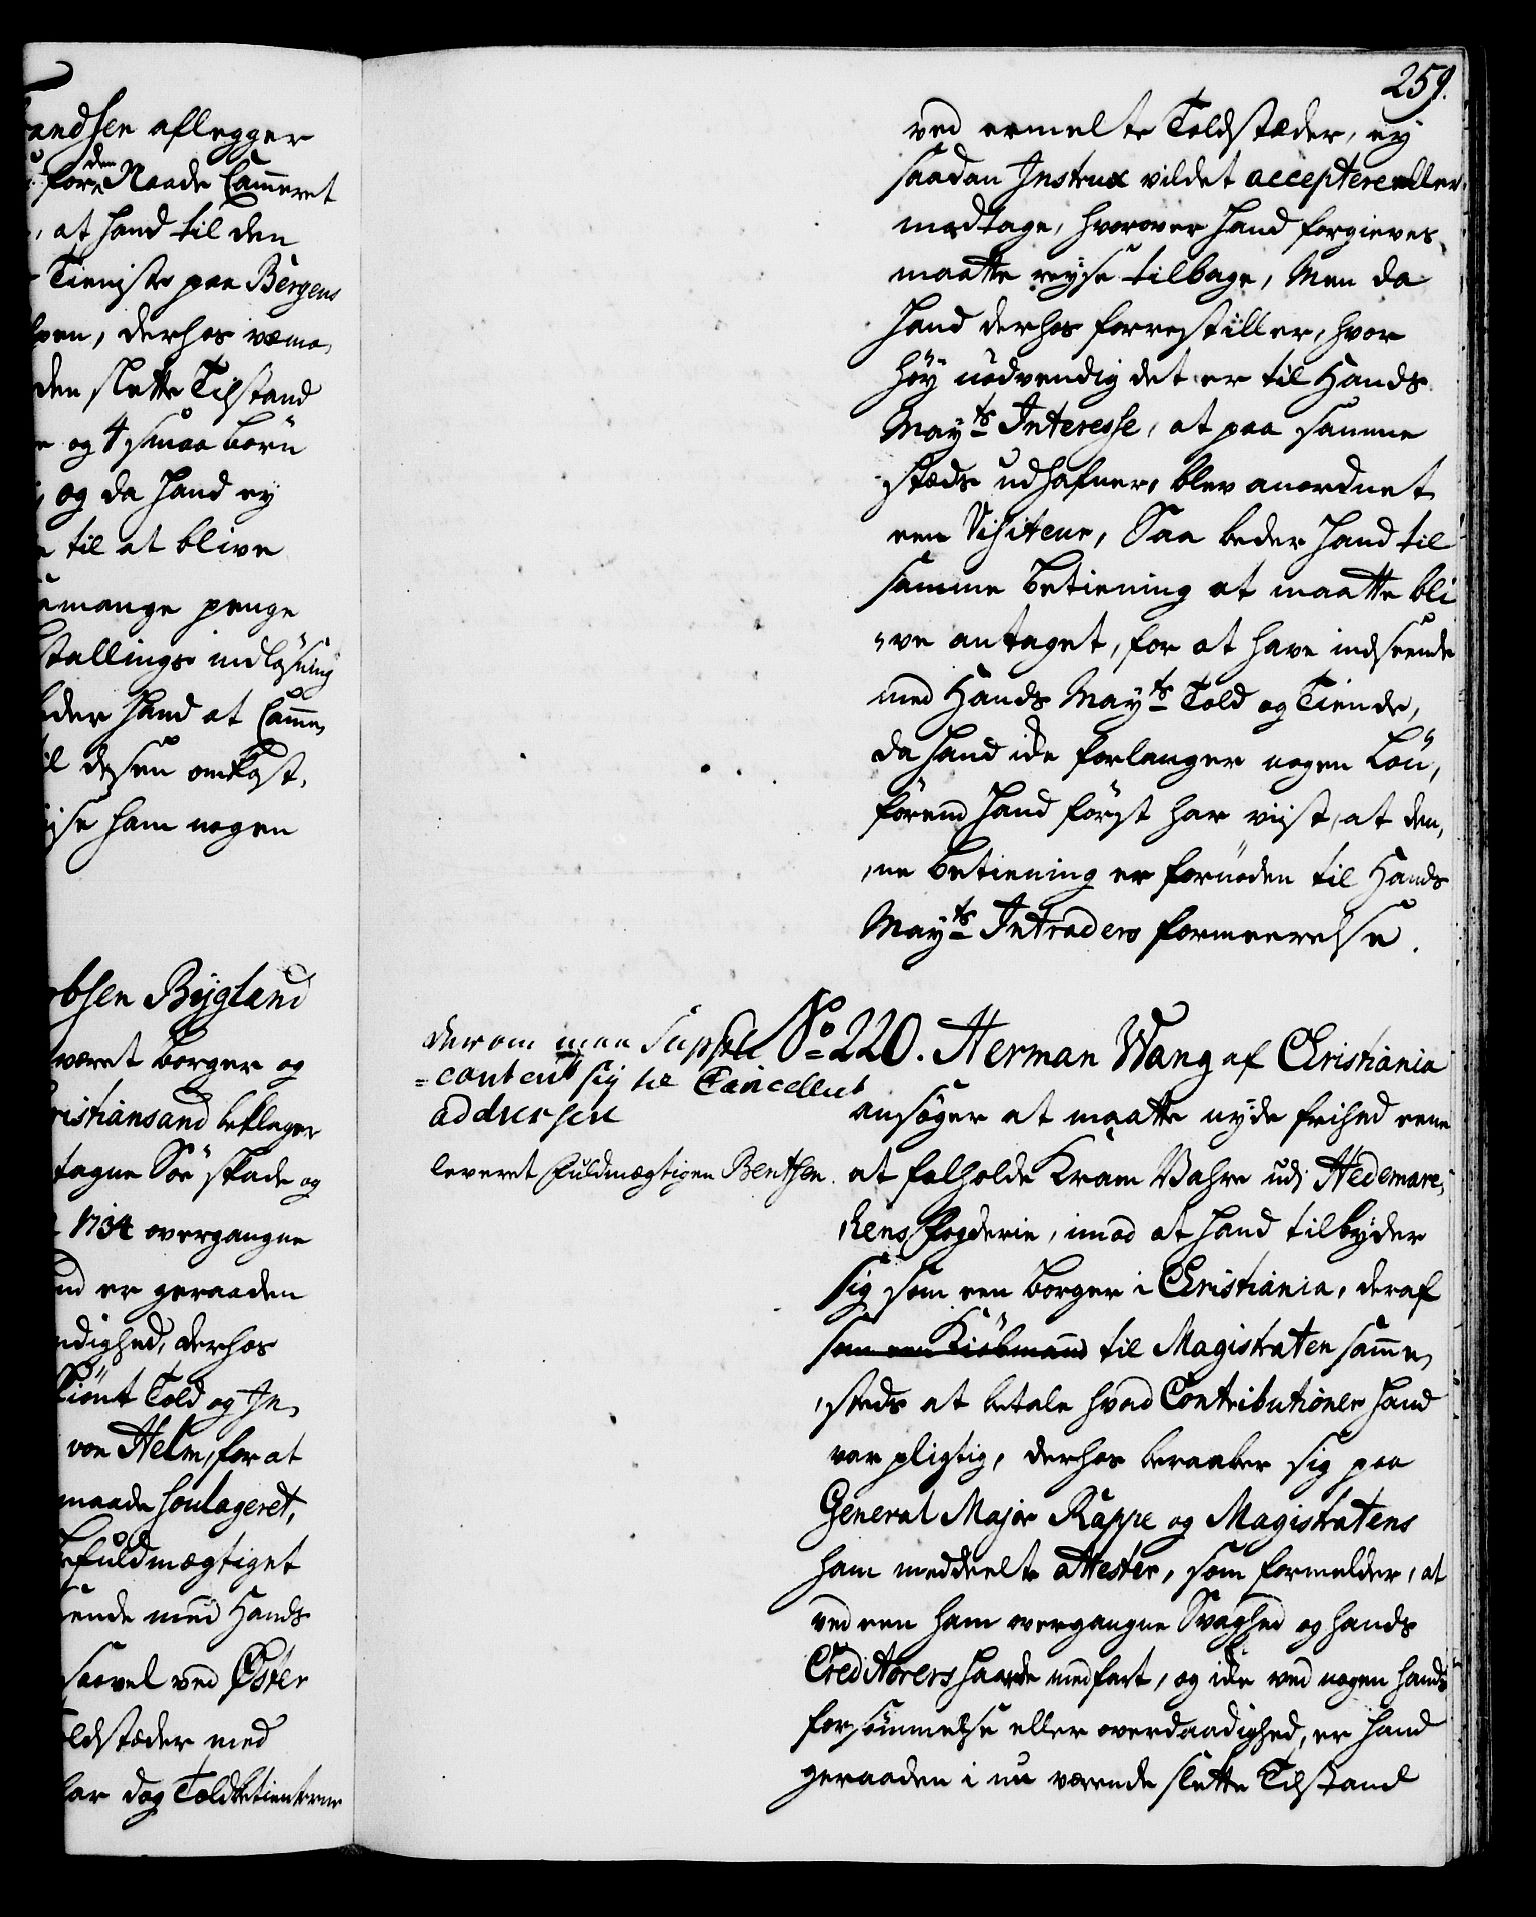 andsen aflegger
for den Naade Cammeret
, at hand til den
Tieniste paa Bergens
den slette Tilstand
og 4 smaa börn
og da hand ey
til at blive
mange penge
stallings indlösning
eder hand at Camme,
dessen omkost,
ise ham nogen
obsen Bygland
været borger og
ristiansand beklager
tagne Söe skade og
1734 overgangne
nd er geraaden
ndighed, derhos
Told og In,
von Helm, for at
maade soulageret,
efuldmægtiget
ende med Hands
saavel ved Öster
oldstæder med
har dog Toldbetienterne
259.
ved ermelte Toldstæder, ey
saadan Instrux vildet acceptere eller
modtage, hvorover hand forgieves
maatte reyse tilbage, Men da
hand derhos forrestiller, hvor
höy nödvendig det er til Hands
Mayts Interesse, at paa samme
stæds udhafner, blev anordnet
een Visiteur, Saa beder hand til
samme betiening at maatte bli
"ve antaget, for at have indseende
med Hands Mayts Told og Tiende,
da hand icke forlanger nogen Lön,
förend hand först har viist, at den,
,ne betiening er fornöden til Hands
Mayts Intraders formeerelse.
derom maa Suppli
=canten sig til Cancelliet
addressere
leveret Fuldmægtigen Bentsen.
No 220. Herman Wang af Christiania
ansöger at maatte nyde frihed eene
at falholde Kram Vahre udi Hedemare,
,kens fogderie, imod at hand tilbyder
sig som een borger i Christiania, deraf
som een Kiöbmand til Magistraten samme,
,steds at betale hvad Contributioner hand
var pligtig, derhos beraaber sig paa
General Major Rappe og Magistratens
ham meddeelte attester, som formelder, at
ved een ham overgangne Svaghed og hands
Creditorers haarde medfart, og icke ved nogen hands
forsömmelse eller overdaadighed, er hand
geraaden i nu værende slette Tilstand